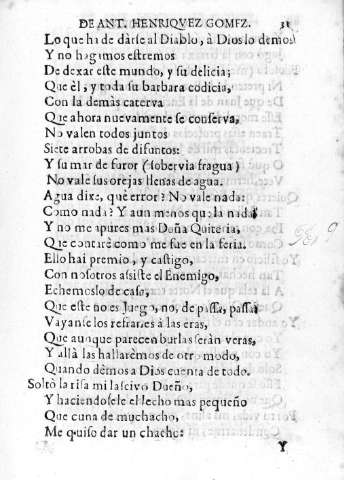 DE ANT. HENRIQUEZ GOMEZ. 31
Lo que ha de dàrse al Diablo, à Dios lo demos
Y no hagamos estremos
De dexar este mundo, y su delicia;
Que èl, y toda su barbara codicia,
Con la demàs caterva
Que ahora nuevamente se conserva,
No valen todos juntos
Siete arrobas de difuntos:
Y su mar de furor (sobervia fragua)
No vale sus orejas llenas de agua.
Agua dixe, què error? No vale nada:
Como nada? Y aun menos que la nada
Y no me apures mas Doña Quiteria,
Que contarè como me fue en la feria.
Ello hai premio, y castigo,
Con nosotros assiste el Enemigo,
Echemoslo de casa,
Que este no es Juego, no, de passa, passa;
Vayanse los refranes à las eras,
Que aunque parecen burlas seràn veras,
Y allà las hallarèmos de otro modo,
Quando dèmos à Dios cuenta de todo.
Soltò la risa mi lascivo Dueño,
Y haciendosele el lecho mas pequeño
Que cuna de muchacho,
Me quiso dar un chacho:
Y